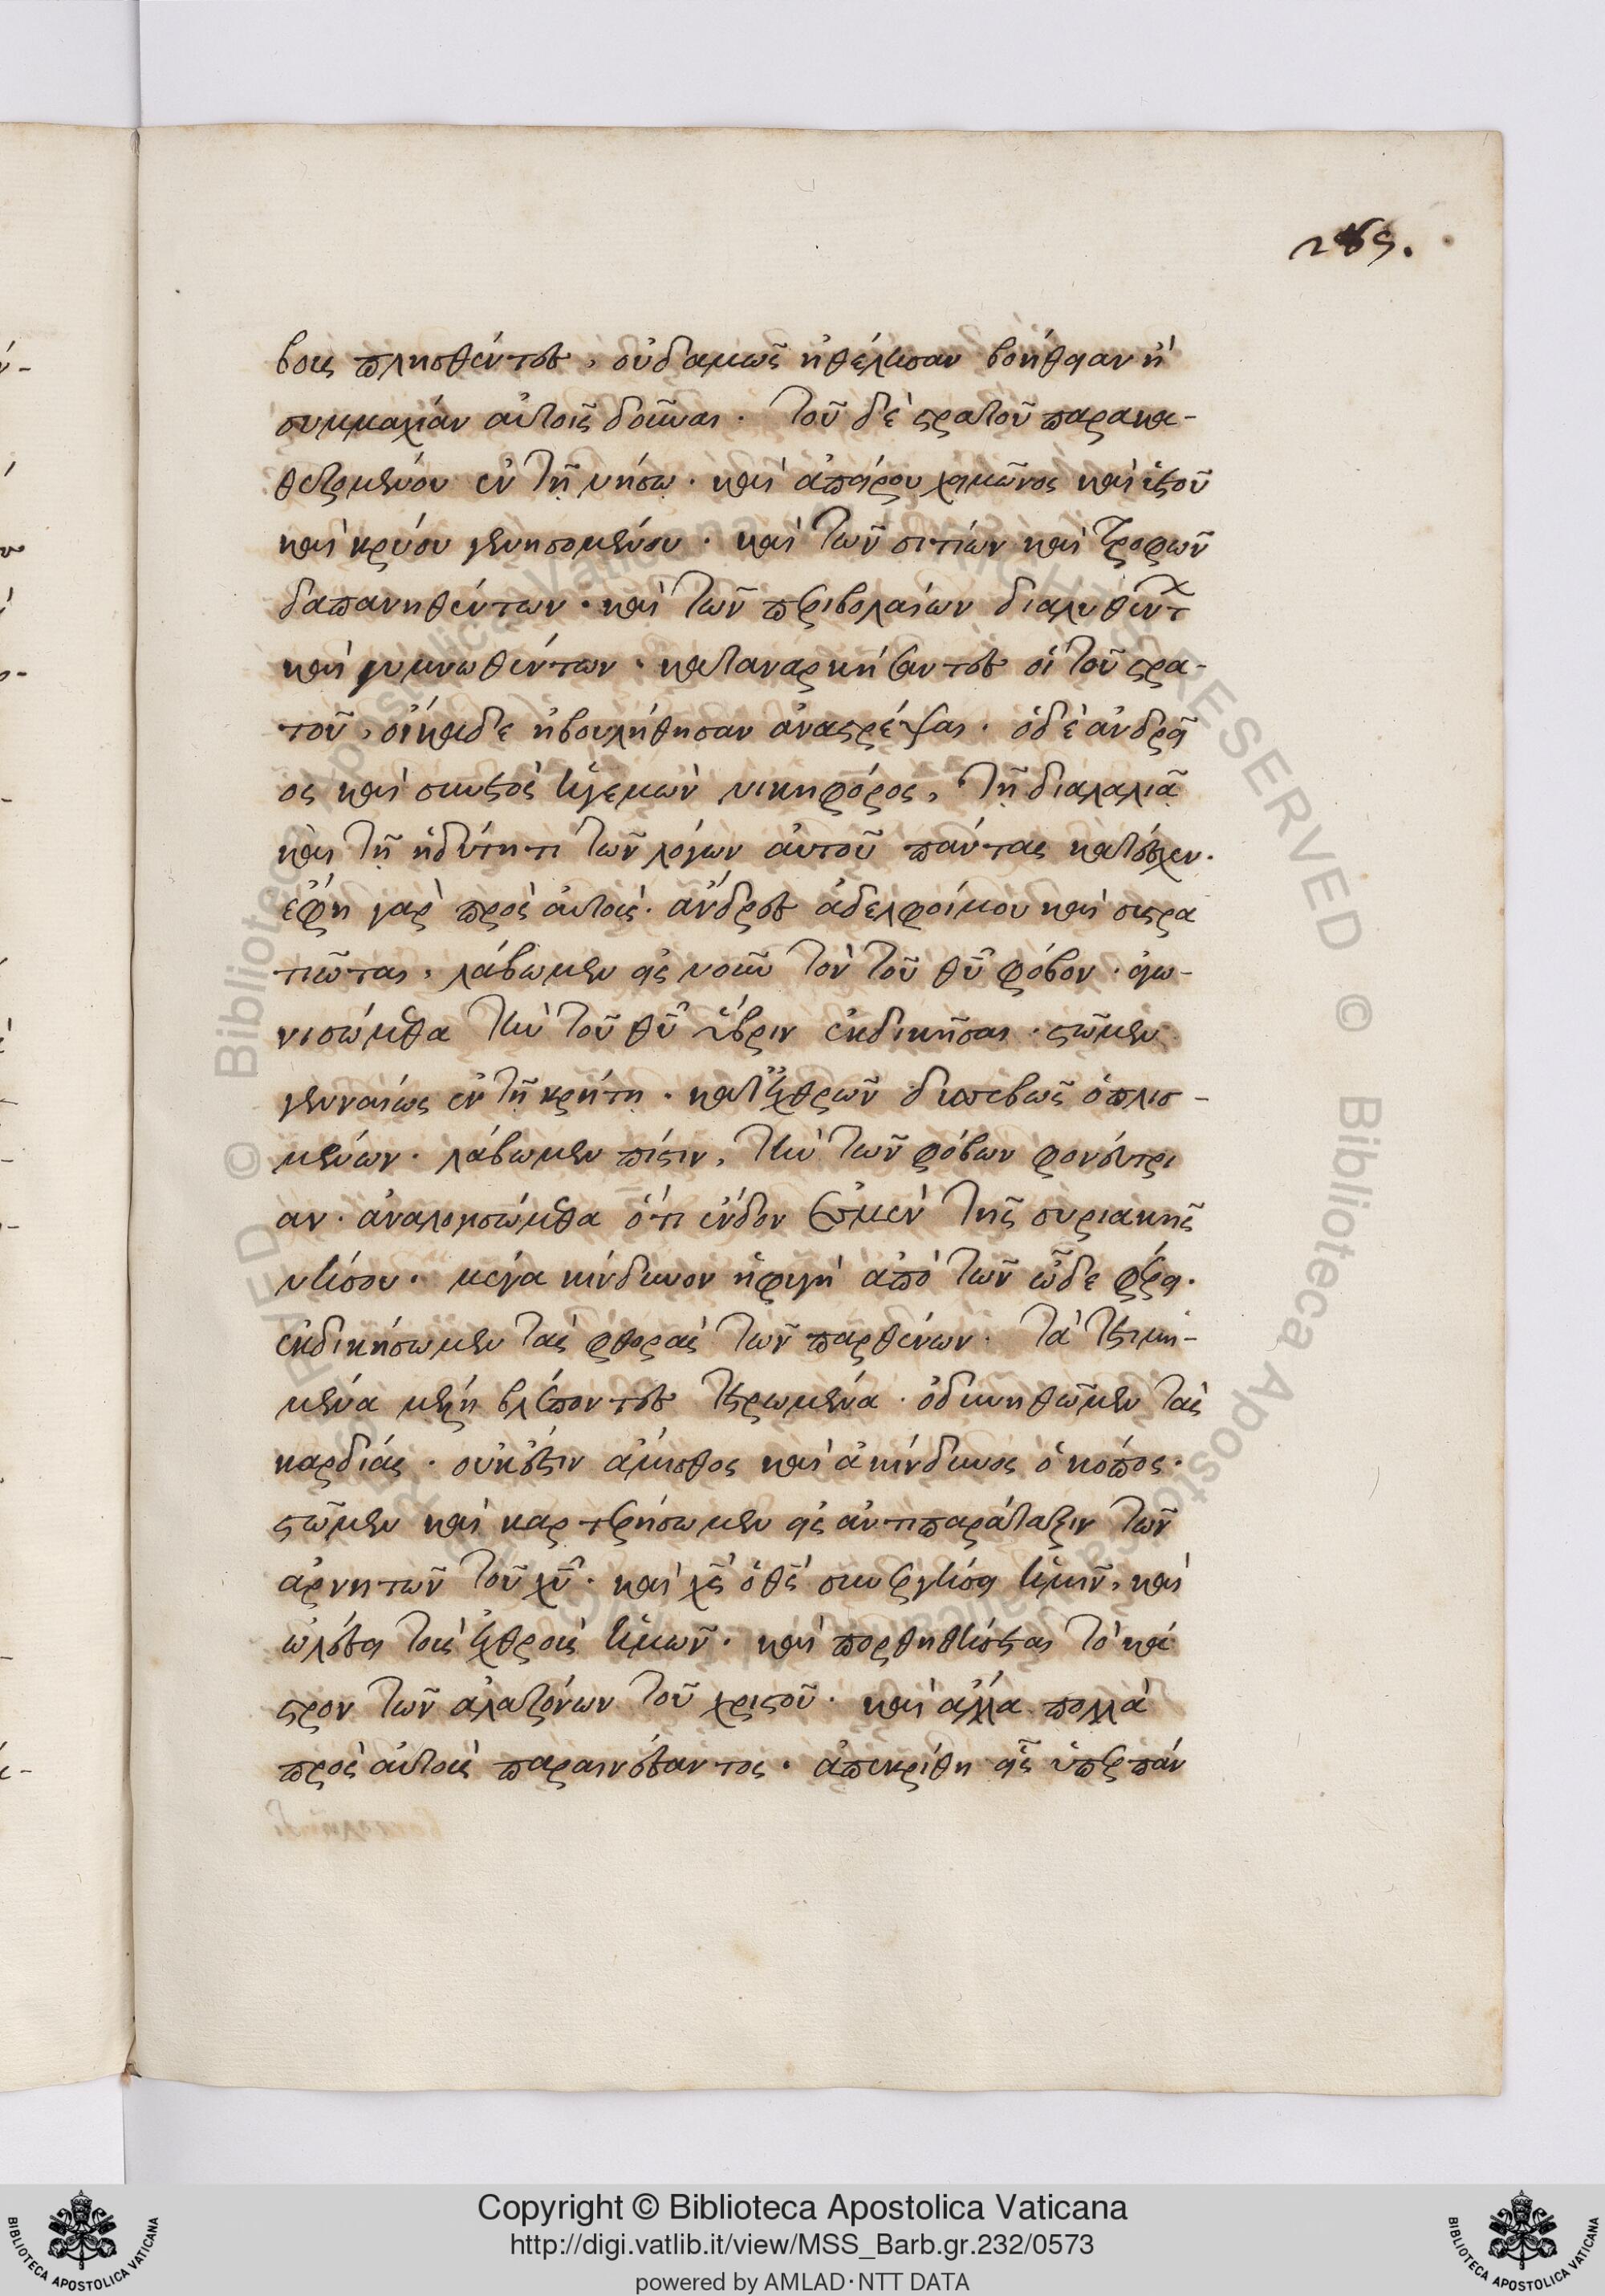 285.
βους πλησθέντες, οὐδαμῶς ἠθέλησαν βοήθειαν ἢ
συμμαχίαν αὐτοῖς δοῦναι. τοῦ δὲ στρατοῦ παρακα-
θεζομένου ἐν τῇ νήσῳ. καὶ ἀπείρου χειμῶνος καὶ ἐτοῦ
καὶ κρύου γενησομένου. καὶ τῶν σιτίων καὶ τροφῶν
δαπανηθέντων. καὶ τῶν περιβολαίων διαλυθέντ
καὶ γυμνωθέντων. καταναρκήσαντες οἱ τοῦ στρα-
τοῦ, οἴκαδε ἠβουλήθησαν ἀναστρέψαι. ὁ δὲ ἀνδρεῖ
ος καὶ συνετὸς ἡγεμὼν νικηφόρος, τῇ διαλαλιᾷ
καὶ τῇ ἡδύτητι τῶν λόγων αὐτοῦ πάντας κατέσχεν.
ἔφη γὰρ πρὸς αὐτούς. ἄνδρες ἀδελφοί μου καὶ στρα
τιῶται, λάβωμεν εἰς νοῦν τὸν τοῦ θυ φόβον. ἀγω-
νισώμεθα τὴν τοῦ θυ ὕβριν ἐκδικῆσαι. στῶμεν
γενναίως ἐν τῇ κρήτῃ. κατ' ἐχθρῶν δυσσεβῶς ὁπλισ-
μένων. λάβωμεν πίστιν, τὴν τῶν φόβων φονεύτρι
αν. ἀναλογισώμεθα ὅτι ἔνδον ἐσμὲν τῆς συριακῆς
νήσου. μέγα κίνδυνον ἡ φυγὴ ἀπὸ τῶν ὧδε φέρει.
ἐκδικήσωμεν τὰς φθορὰς τῶν παρθένων. τὰ τετιμη-
μένα μέλη βλέποντες τετρωμένα. ὀδυνηθῶμεν τὰς
καρδίας. οὐκ ἔστιν ἄμισθος καὶ ἀκίνδυνος ὁ κόπος.
στῶμεν καὶ καρτερήσωμεν εἰς ἀντιπαράταξιν τῶν
ἀρνητῶν τοῦ χυ. καὶ χς ὁ θς συνεργήσει ἡμῖν, καὶ
ὠλέσει τοὺς ἐχθροὺς ἡμῶν. καὶ πορθηθήσεται τὸ κά
στρον τῶν ἀλαζόνων τοῦ χριστοῦ. καὶ ἄλλα πολλὰ
πρὸς αὐτοὺς παραινέσαντος. ἀπεκρίθη εἷς ὑπὲρ πάν
Copyright © Biblioteca Apostolica Vaticana
http://digi.vatlib.it/view/MSS_Barb.gr.232/0573
powered by AMLAD·NTT DATA